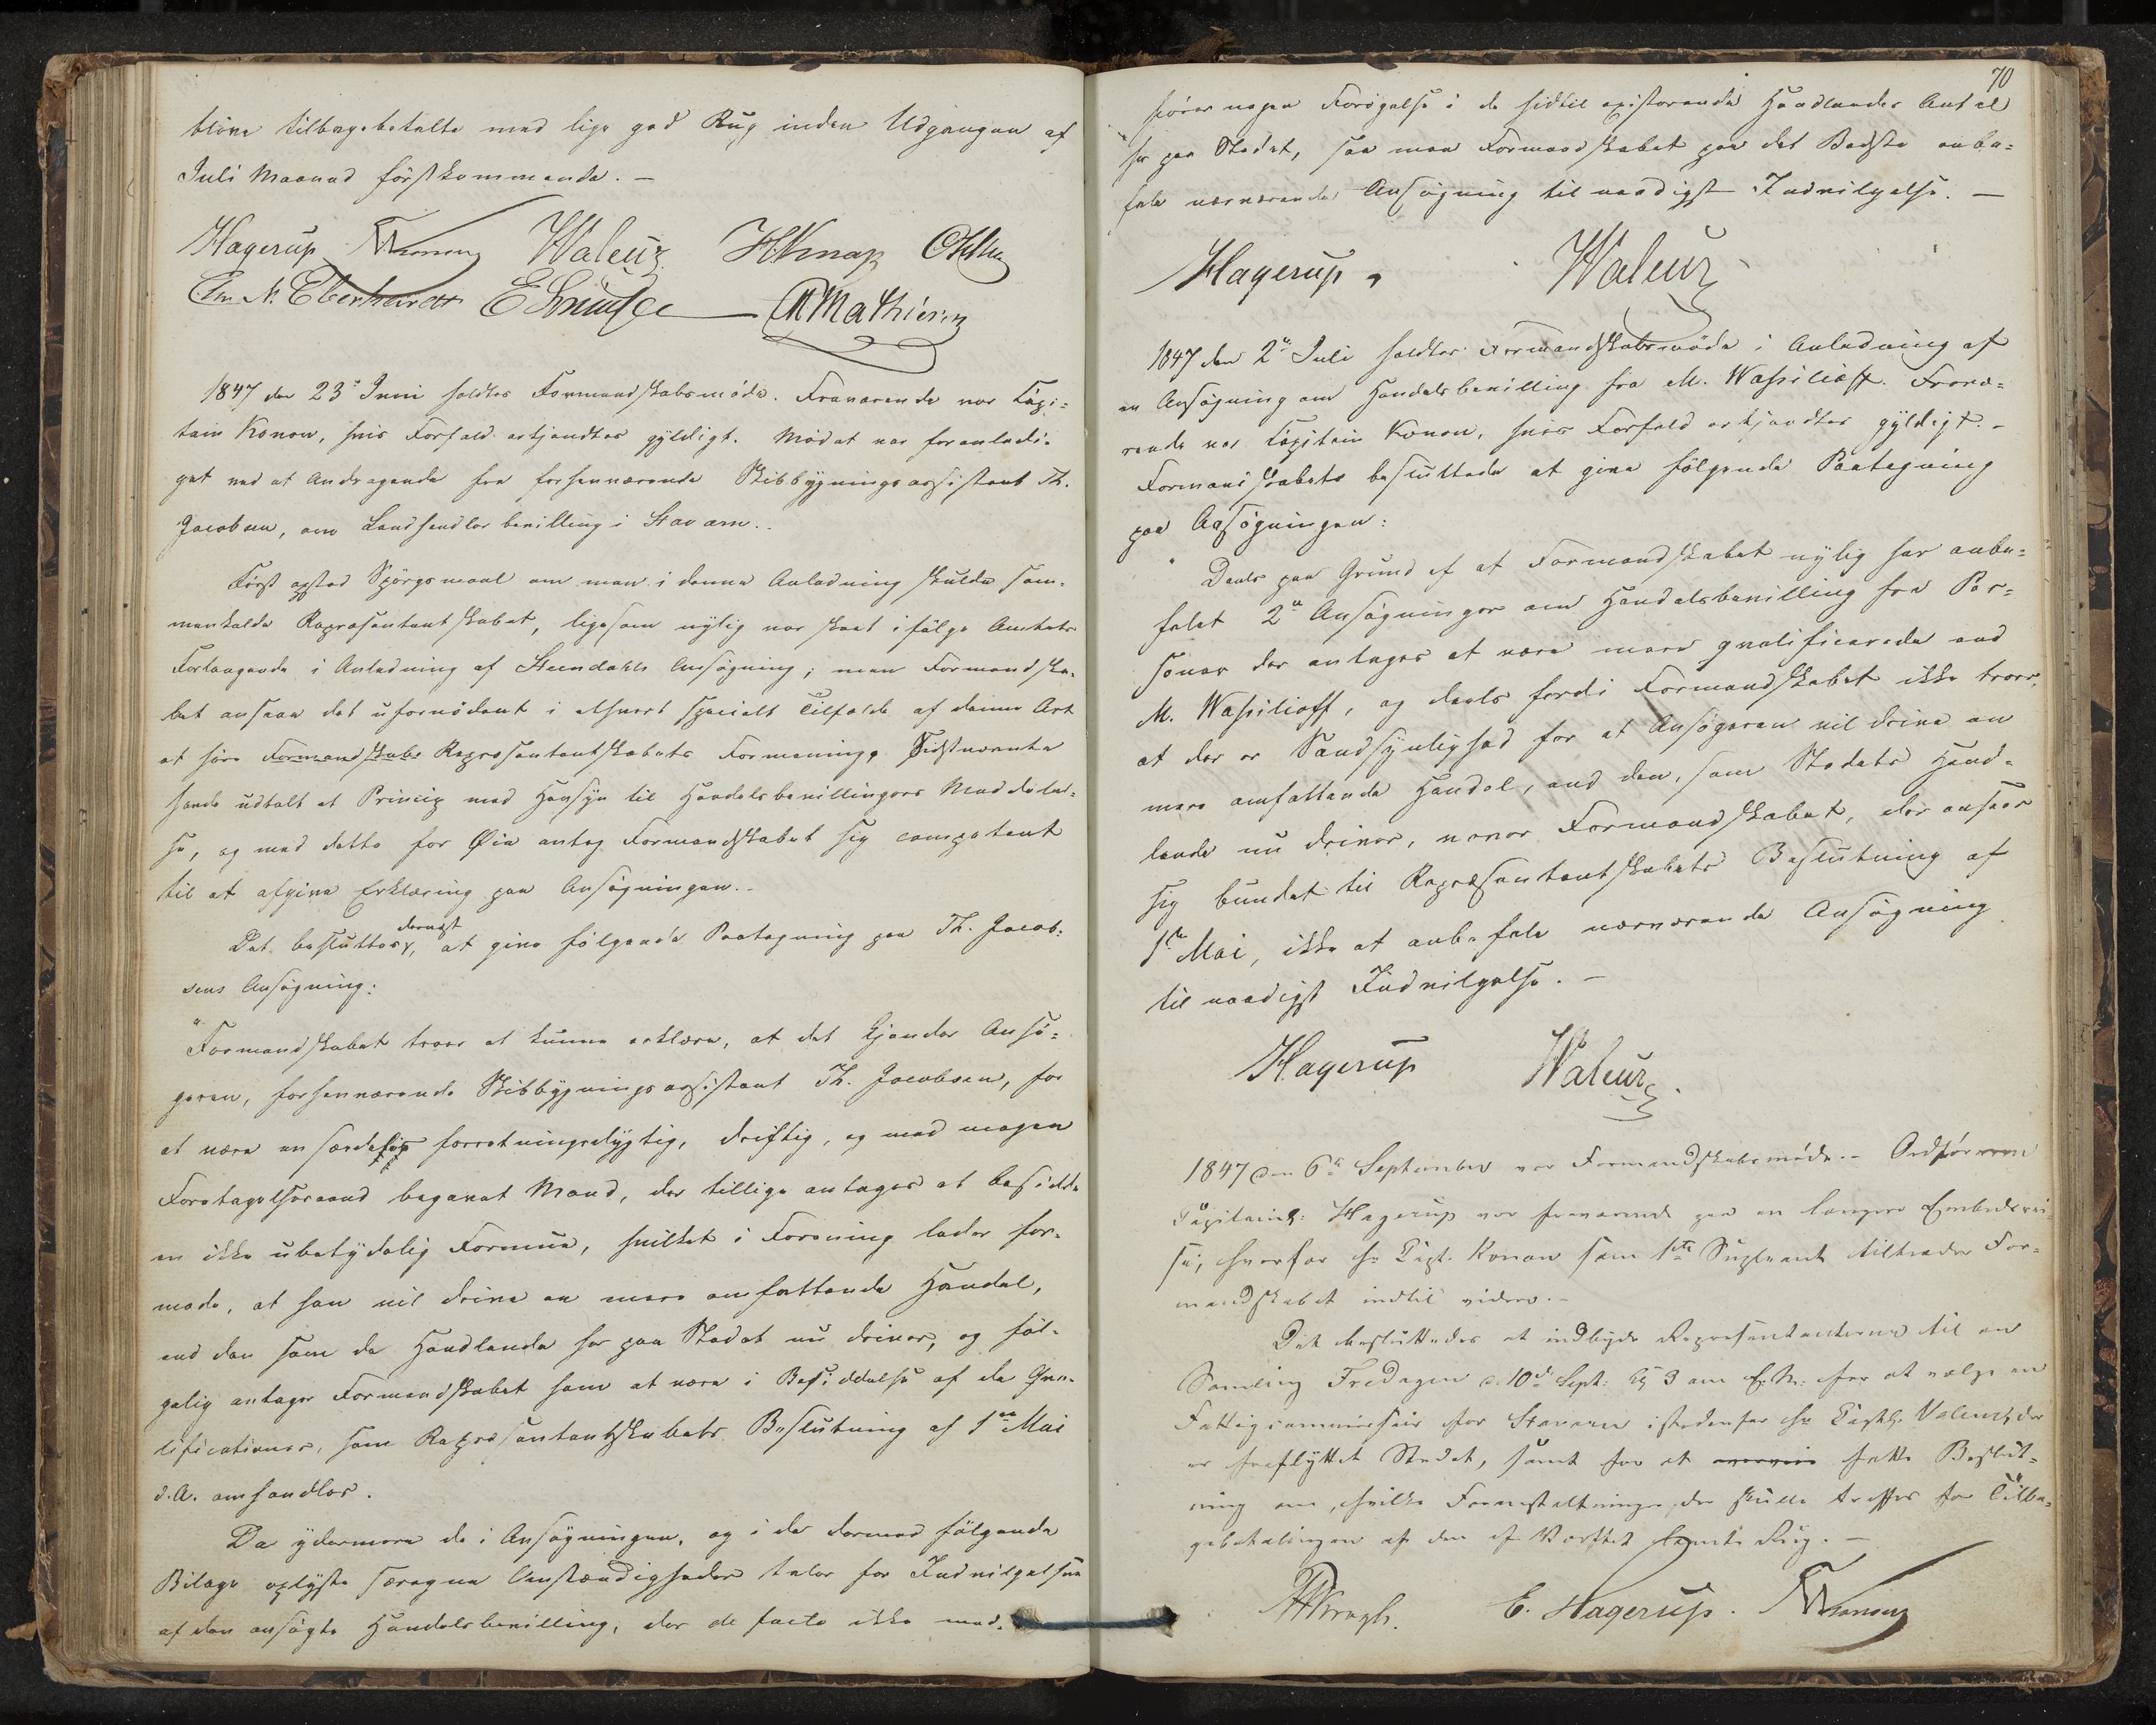 blive tilbagebetalte med lige god Rug inden Udgangen af
Juli Maaned førstkommende. —
Hagerup Konow Waleur HKnap
Em. N. Eberhardt Mathiesen
1847 den 23de Juni holdtes Formandskabsmöde. Fraværende var Capi-
tain Konow, hvis Forfald erkjendtes gyldigt. Mödet var foranledi-
get ved et Andragende fra forhenværende Skibbygningsassistent Th.
Jacobsen, om Landhandlerbevilling i Staværn.
Först opstod Spörgsmaal om man i denne Anledning skulde sam-
menkalde Repræsentantskabet, ligesom nylig var skeet ifölge Amtets
Forlangende i Anledning af Steendahls Ansögning; men Formandska-
bet ansaae det ufornödent i ethvert specielt Tilfælde af denne Art
at höre Formandskabs Repræsentantskabets Formening, Sidstnævnte
havde udtalt et Princip med Hensyn til Handelsbevillingers Meddelel-
se, og med dette for Øie antog Formandskabet sig competent
til at afgive Erklæring paa Ansögningen.
dernæst
Det besluttes, at give fölgende Paategning paa Th. Jacob-
sens Ansögning:
"Formandskabet troer at kunne erklære, at det kjender Ansö-
geren, forhenværende Skibbygningsassistent Th. Jacobsen, for
at være en særdeles forretningsdygtig, driftig, og med megen
Foretagelsesaand begavet Mand, der tillige antages at besidde
en ikke ubetydelig Formue, hvilket i Forening lader for-
mode, at han vil drive en mere omfattende Handel,
end den som de Handlende her paa Stedet nu driver, og föl-
gelig antager Formandskabet ham at være i Besiddelse af de Qva-
lificationer, som Repræsentantskabets Beslutning af 1ste Mai
d.A. omhandler.
Da ydermere de i Ansögningen, og i de dermed fölgende
Bilage oplyste særegne Omstændigheder taler for Indvilgelsen
af den ansögte Handelsbevilling, der de facto ikke med-
70
förer nogen Forögelse i de hidtil existerende Handlendes Antal
her paa Stedet, saa maa Formandskabet paa det Bedste anbe-
fale nærværende Ansögning til naadigst Indvilgelse. —
Hagerup Waleur
1847 den 2den Juli holdtes Formandskabsmöde i Anledning af
en Ansögning om Handelsbevilling fra M. Wassilioff. Fravæ-
rende var Capitain Konow, hvis Forfald erkjendtes gyldigt. –
Formandskabets besluttede at give fölgende Paategning
paa Ansögningen:
"Deels paa Grund af at Formandskabet nylig har anbe-
falet 2de Ansögninger om Handelsbevilling fra Per-
soner der antages at være mere qvalificerede end
M. Wassilioff, og deels fordi Formandskabet ikke troer,
at der er Sandsynlighed for at Ansögeren vil drive en
mere omfattende Handel, end den, som Stedets Hand-
lende nu driver, vover Formandskabet, der anseer
sig bundet til Repræsentantskabets Beslutning af
1ste Mai, ikke at anbefale nærværende Ansögning
til naadigst Indvilgelse. —
Hagerup Waleur
1847 den 6te September var Formandskabsmöde. – Ordföreren
Capitainl: Hagerup var fraværende paa en længere Embedsrei-
se, hvorfor Hr. Capt. Konow som 1ste Supleant tiltræder For-
mandskabet indtil videre. –
Det besluttedes at indbyde Repræsentanterne til en
Samling Fredagen d. 10de Sept. Kl 3 om E.M. for at vælge en
Fattigcommissair for Stavern istedenfor Hr. Waleur, der
er fraflyttet Stedet, samt for at fatte Beslut-
ning om, hvilke Foranstaltninger, der skulle træffes for Tilba-
gebetalingen af den af Værftet laante Rug. —
Kragh. E. Hagerup. Konow